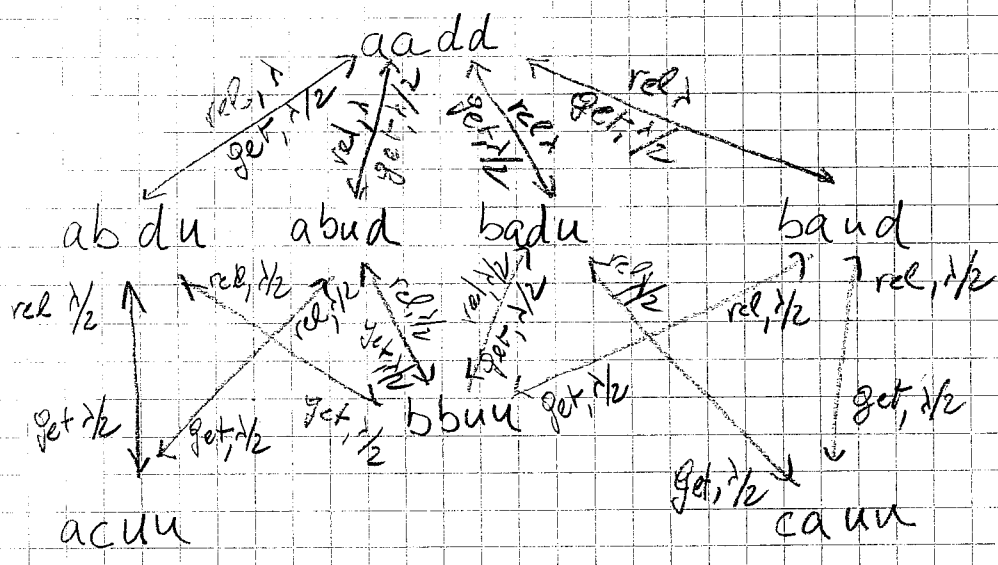 aadd
rel, λ rel, λ rel λ rel λ
get, λ/2 get, λ/2 get, λ/2 get, λ/2
abdu abud badu baud
rel λ/2 rel, λ/2 rel, λ/2 rel, λ/2 rel, λ/2 rel, λ/2 rel, λ/2 rel, λ/2
get λ/2 get, λ/2 get, λ/2 get, λ/2 get, λ/2 get, λ/2 get, λ/2 get, λ/2
bbuu
acuu cauu